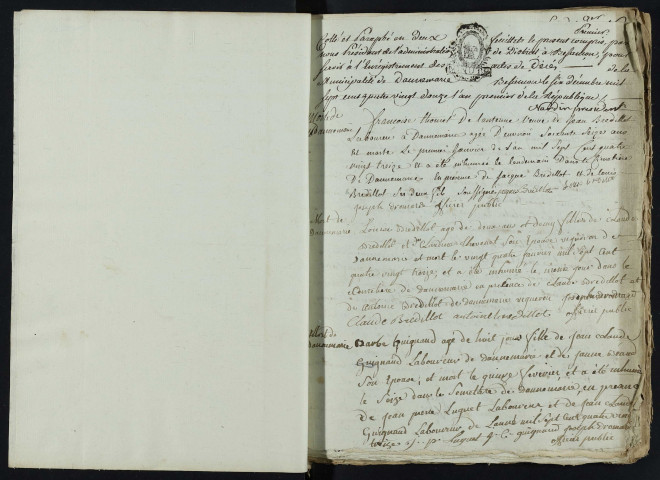 Premier
Cotté et Paraphé en deux feuillets le present compris, par
nous Président de l'administration du District de Besançon, pour
servir à l'Enregistrement des actes de Décès de la
Municipalité de Dannemarie Besançon le six décembre mil
sept cens quatre vingt douze l'an premier de la République
Nardin président
Mort de
Dannemarie
françoise thouret de lantenne veuve de Jean Bredillot
Laboureur à Dannemarie agée d'environ soixante seize ans
est morte le premier janvier de l'an mil sept cens quatre
vingt treize et a été inhumée le lendemain dans le cimetiere
De Dannemarie en presence de Jacque Bredillot et de Louis
Bredillot ses deux fils soussignés jaques Bredillot
joseph officier public
Mort de
Dannemarie
Louise Bredillot age de deux ans et demy fille de Claude
Bredillot et de Claudine thouvenet son epouse vigneron de
Dannemarie est mort le vingt quatre janvier mil sept cent
quatre vingt treize, et a été inhumé le meme jour dans le
cimetiere de Dannemarie en presence de Claude Bredillot et
de antoine Bredillot de dannemarie vigneron joseph
Claude Bredillot antoine bredillot officier public
Mort de
Dannemarie
Barbe Guignand age de huit jour fille de jean claude
Guignand Laboureur de dannemarie et de jeanne
son epouse, est mort le quinze fevrier, et a été inhumé
le seize dans le semetiere de Dannemarie, en presence
de jean pierre Luquet Laboureur et de jean claude
Guignand Laboureur de Lannee mil sept cent quatre vingt
treize j. p. Luquet j c guignand joseph
officié public